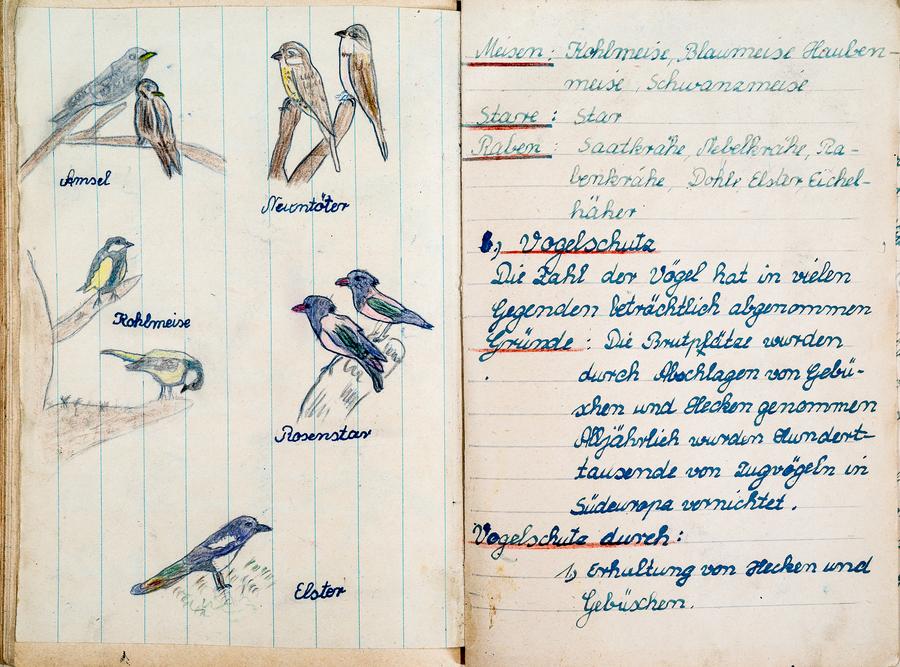 Amsel
Neuntöter
Kohlmeise
Rosenstar
Elster
Meisen: Kohlmeise, Blaumeise Hauben-
meise, Schwanzmeise
Stare: Star
Raben: Saatkrähe, Nebelkrähe, Ra-
benkrähe, Dohle Elster Eichel-
häher
b, Vogelschutz
Die Zahl der Vögel hat in vielen
Gegenden beträchtlich abgenommen
Gründe: Die Brutplätze wurden
durch Abschlagen von Gebü-
schen und Hecken genommen
Alljährlich wurden Hundert-
tausende von Zugvögeln in
Südeuropa vernichtet.
Vogelschutz durch:
1, Erhaltung von Hecken und
Gebüschen.